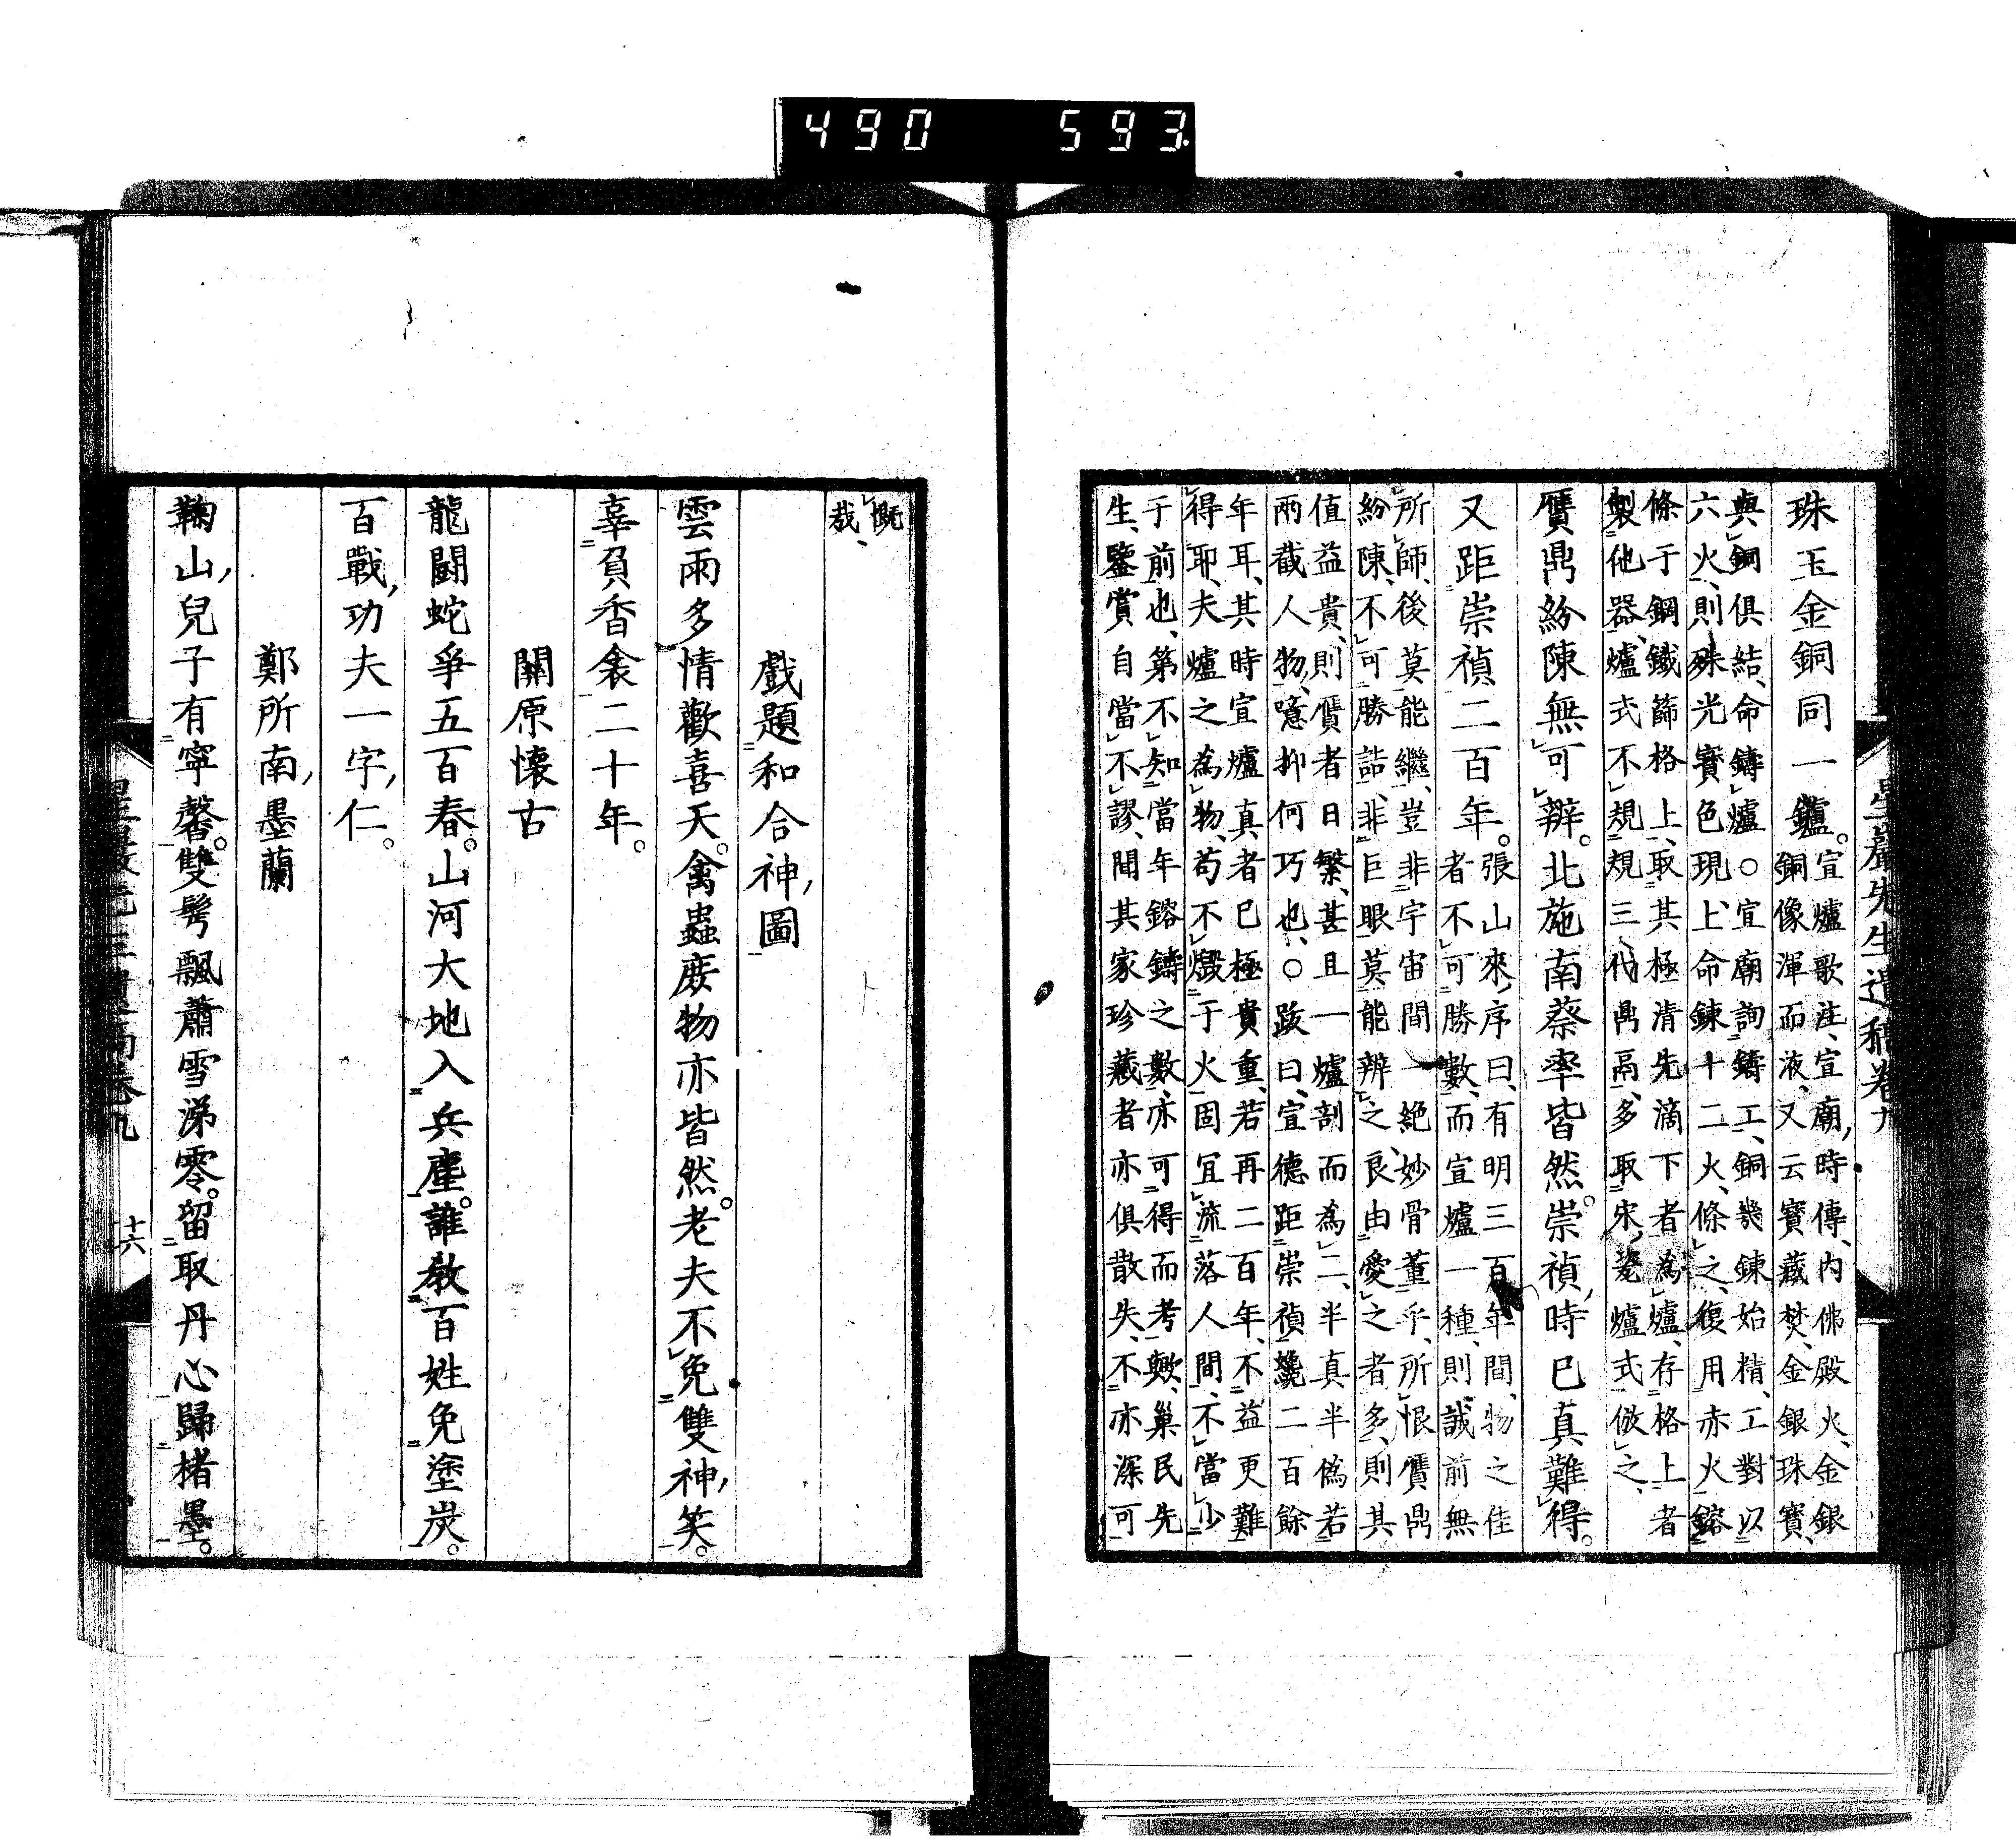 490 593
星巖先生遺稿卷九
珠玉金銅同一鑪。宣爐歌注、宣廟時傳、内佛殿火、金銀
銅像渾而液、又云寳藏焚、金銀珠寳、
與銅俱結、命鑄爐○宣廟詢鑄工、銅幾鍊始精、工對以
六火、則殊光寳色現、上命鍊十二火、條之、復用赤火鎔
條于鋼鐵篩格上、取其極清先滴下者為爐、存格上者
製他器、爐式不規規三代鼎鬲、多取宋瓷爐式倣之、
贋鼎紛陳無可辨。北施南蔡率皆然。崇禎時已真難得。
又距崇禎二百年。張山來序曰、有明三百年間、物之佳
者不可勝數、而宣爐一種、則誠前無
所師、後莫能繼、豈非宇宙間一絶妙骨董乎、所恨贋鼎
紛陳、不可勝詰、非巨眼莫能辨之、良由愛之者多、則其
值益貴、則贋者日繁、甚且一爐剖而為二、半真半僞若
兩截人物、噫抑何巧也、○跋曰、宣德距崇禎纔二百餘
年耳、其時宣爐真者已極貴重、若再二百年、不益更難
得耶、夫爐之為物、苟不燬于火、固宜流落人間、不當少
于前也、第不知當年鎔鑄之數、亦可得而考歟、巢民先
生、鑒賞自當不謬、聞其家珍藏者亦俱散失、不亦深可
慨
哉、
戲題和合神圖
雲雨多情歡喜天。禽蟲庶物亦皆然。老夫不免雙神笑。
辜負香衾二十年。
關原懷古
龍鬪蛇爭五百春。山河大地入兵塵。誰敎百姓免塗炭。
百戰功夫一字仁。
鄭所南墨蘭
鞠山兒子有寧馨。雙鬂飄蕭雪涕零。留取丹心歸楮墨。
十六